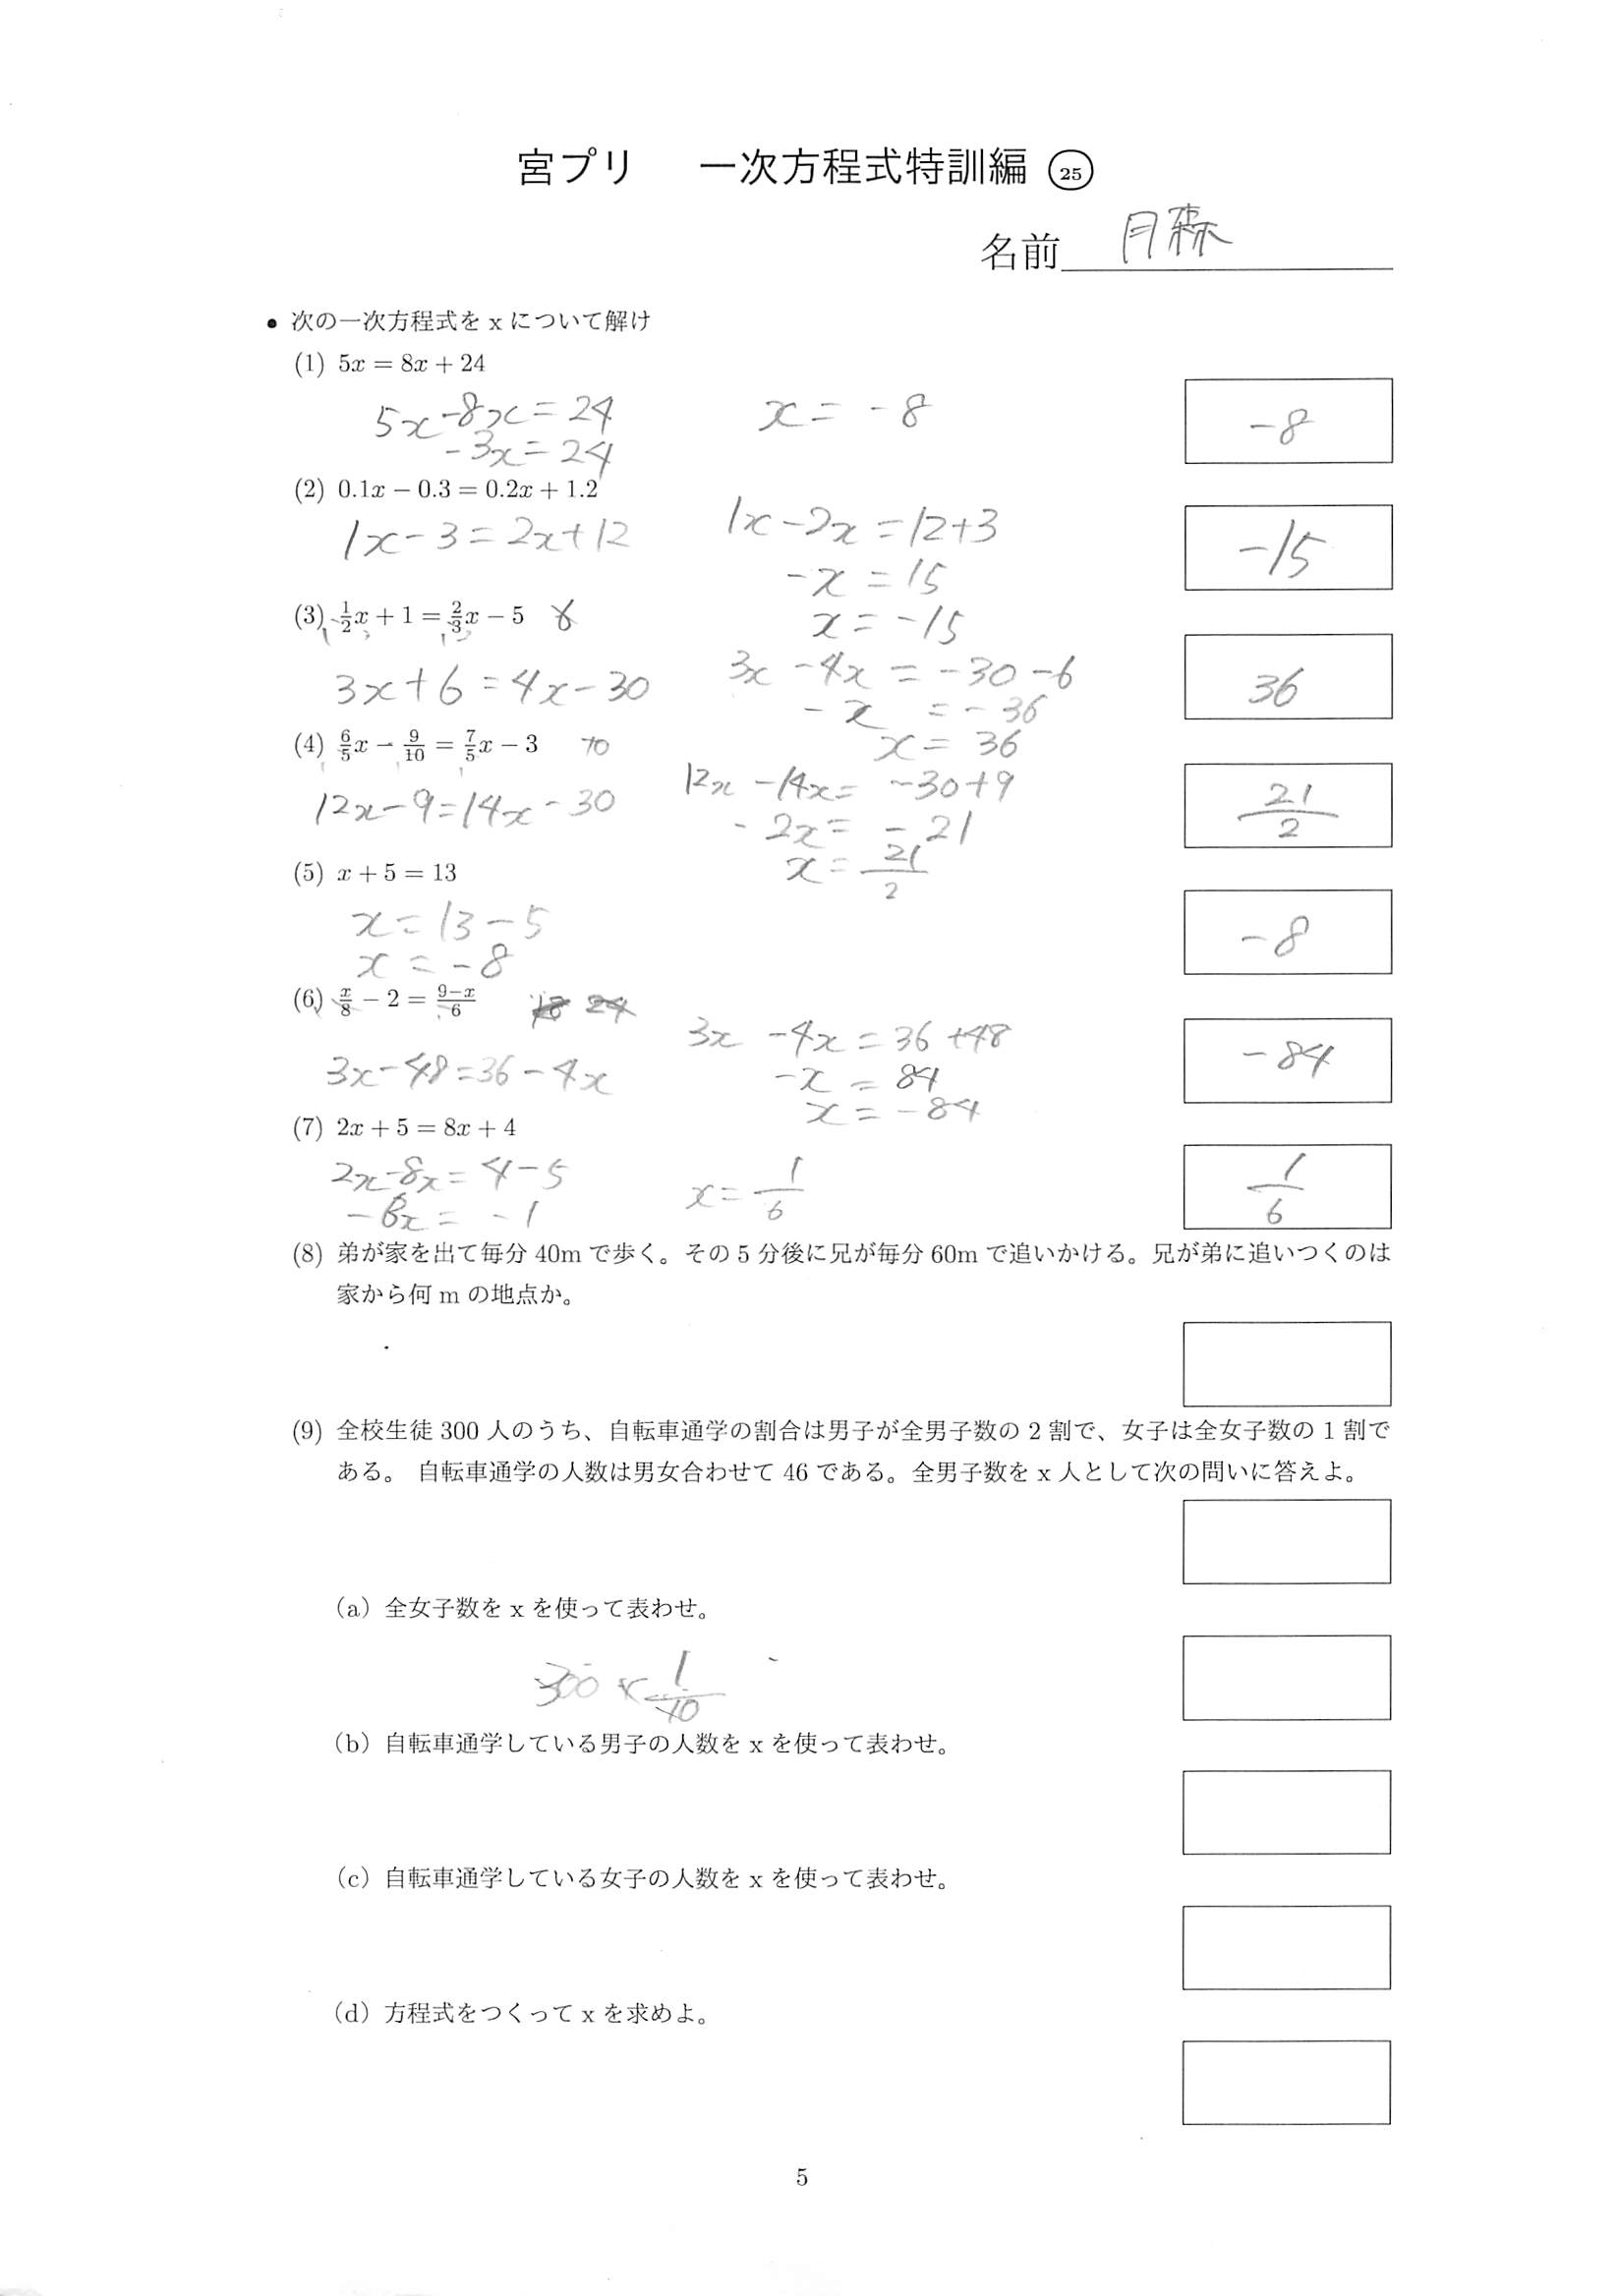 宮プリ 一次方程式特訓編 ㉕
名前 月森
• 次の一次方程式を x について解け
(1) 5x = 8x + 24
5x-8x=24
-3x=24
x = -8
-8
(2) 0.1x − 0.3 = 0.2x + 1.2
1x-3=2x+12
1x-2x=12+3
-x=15
x=-15
-15
(3) 1/2x + 1 = 2/3x − 5 6
3x+6=4x-30
3x-4x=-30-6
-x=-36
x=36
36
(4) 6/5x − 9/10 = 7/5x − 3 10
12x-9=14x-30
12x-14x=-30+9
-2x=-21
x=21/2
21/2
(5) x + 5 = 13
x=13-5
x=-8
-8
(6) x/8 − 2 = 9−x/6 24
3x-48=36-4x
3x-4x=36+48
-x=84
x=-84
-84
(7) 2x + 5 = 8x + 4
2x-8x=4-5
-6x=-1
x=1/6
1/6
(8) 弟が家を出て毎分 40m で歩く。その 5 分後に兄が毎分 60m で追いかける。兄が弟に追いつくのは
家から何 m の地点か。
(9) 全校生徒 300 人のうち、自転車通学の割合は男子が全男子数の 2 割で、女子は全女子数の 1 割で
ある。 自転車通学の人数は男女合わせて 46 である。全男子数を x 人として次の問いに答えよ。
(a) 全女子数を x を使って表わせ。
300×1/10
(b) 自転車通学している男子の人数を x を使って表わせ。
(c) 自転車通学している女子の人数を x を使って表わせ。
(d) 方程式をつくって x を求めよ。
5